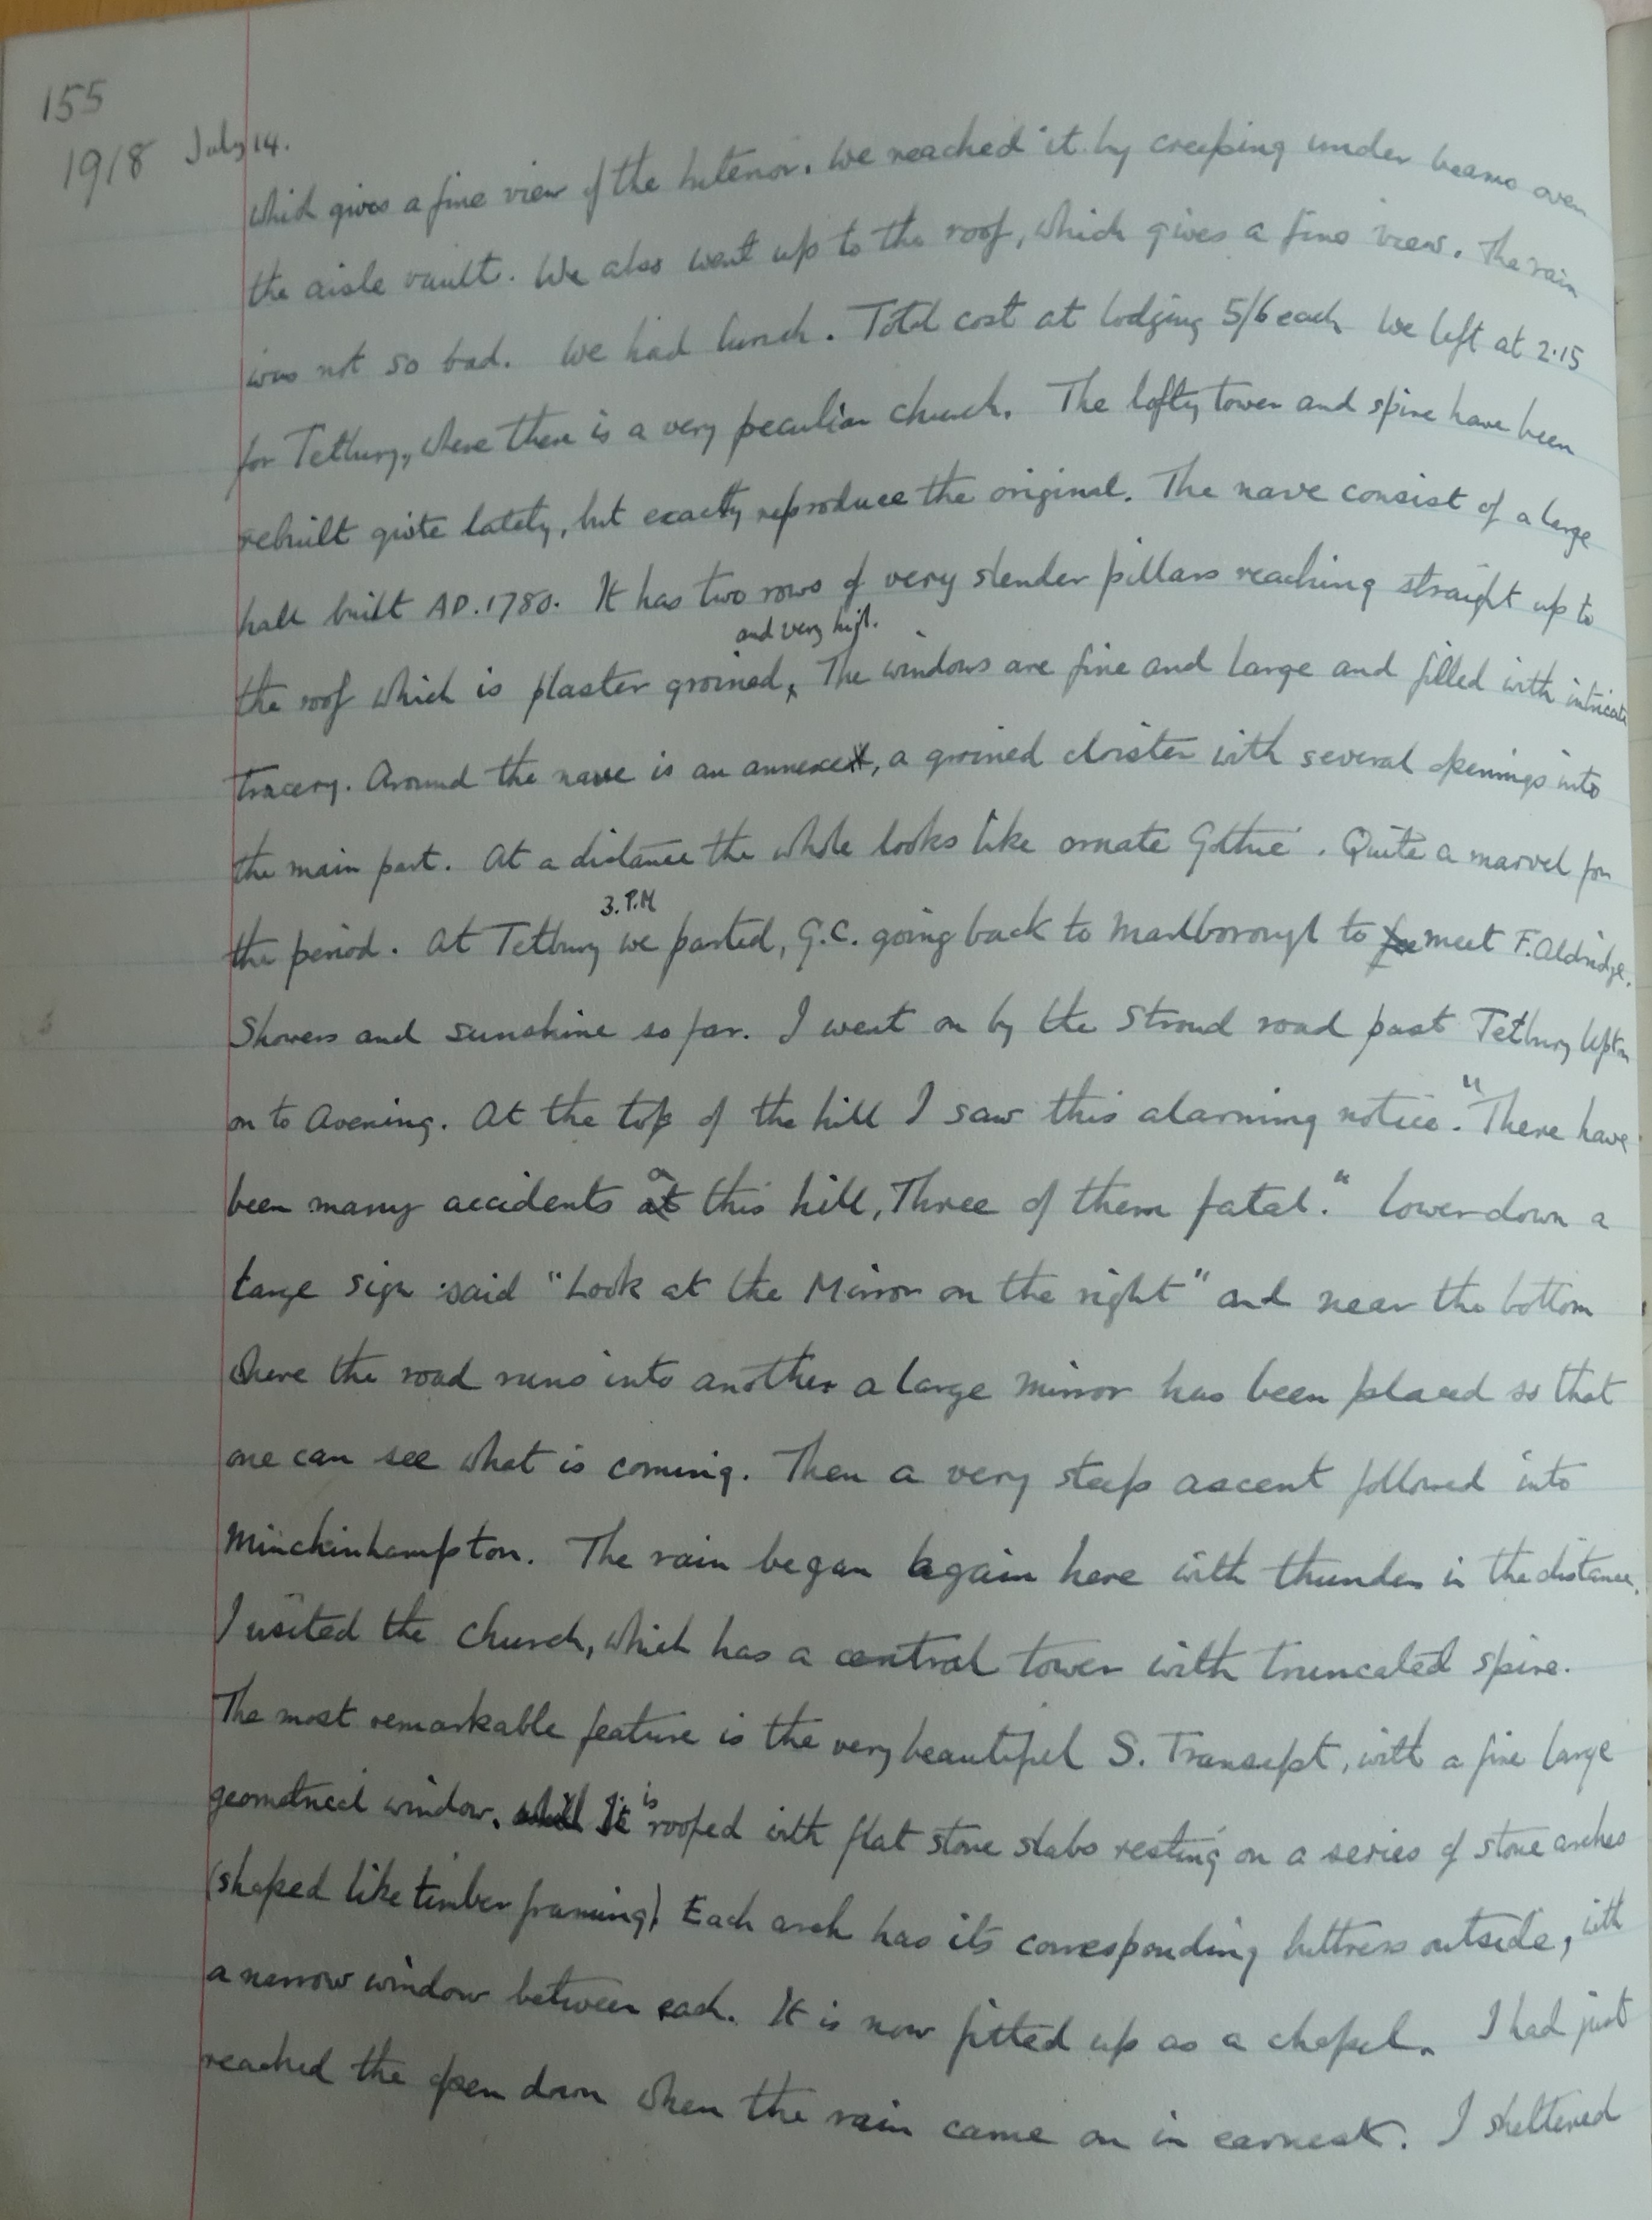 155
1918 July 14.
which gives a fine view of the interior. We reached it by creeping under beams over
the aisle vault. We also went up to the roof, which gives a fine view. The rain
was not so bad. We had lunch. Total cost at lodging 5/6 each We left at 2.15
for Tetbury, where there is a very peculiar church. The lofty tower and spire have been
rebuilt quite lately, but exactly reproduce the original. The nave consist of a large
hall built A.D. 1780. It has two rows of very slender pillars reaching straight up to
and very high.
the roof which is plaster groined, The windows are fine and large and filled with intricate
tracery. Around the nave is an annexe, a groined cloister with several openings into
the main part. At a distance the whole looks like ornate Gothic. Quite a marvel for
3. P.M
the period. At Tetbury we parted, G.C. going back to Marlborough to meet F. Aldridge.
Showers and sunshine so far. I went on by the Stroud road past Tetbury Upton
on to Avening. At the top of the hill I saw this alarming notice. "There have
been many accidents at this hill, Three of them fatal." Lower down a
large sign said "Look at the Mirror on the right" and near the bottom
where the road runs into another a large mirror has been placed so that
one can see what is coming. Then a very steep ascent followed into
Minchinhampton. The rain began again here with thunder in the distance.
I visited the church, which has a central tower with truncated spire.
The most remarkable feature is the very beautiful S. Transept, with a fine large
geometrical window. It is roofed with flat stone slabs resting on a series of stone arches
(shaped like timber framing) Each arch has its corresponding buttress outside, with
a narrow window between each. It is now fitted up as a chapel. I had just
reached the open down when the rain came on in earnest. I sheltered